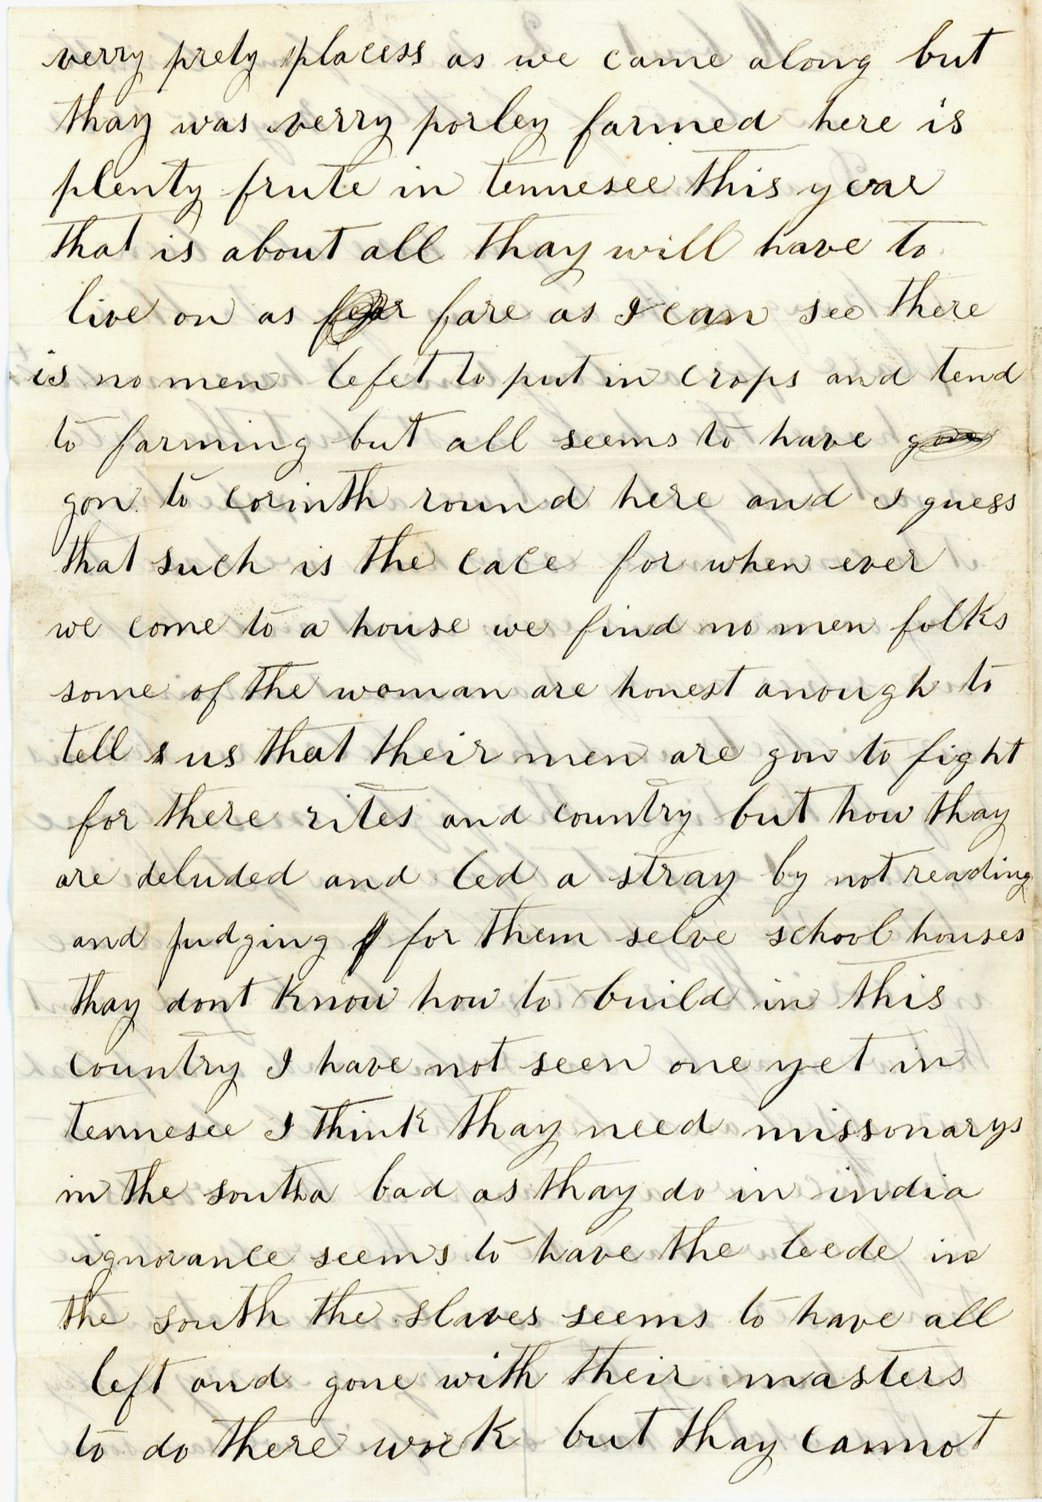 verry prety placess as we came along but
thay was verry porley farmed here is
plenty frute in tennesee this year
that is about all thay will have to
live on as fare as I can see there
is no men lefet to put in crops and tend
to farming but all seems to have
gon to corinth round here and I guess
that such is the cace for when ever
we come to a house we find no men folks
some of the woman are honest anough to
tell us that their men are gon to fight
for there rites and country but how thay
are deluded and led a stray by not reading
and judging for them selve school houses
thay dont know how to build in this
country I have not seen one yet in
tennesee I think thay need missonarys
in the south a bad as thay do in india
ignorance seems to have the leede in
the south the slaves seems to have all
left and gone with their masters
to do there work but thay cannot